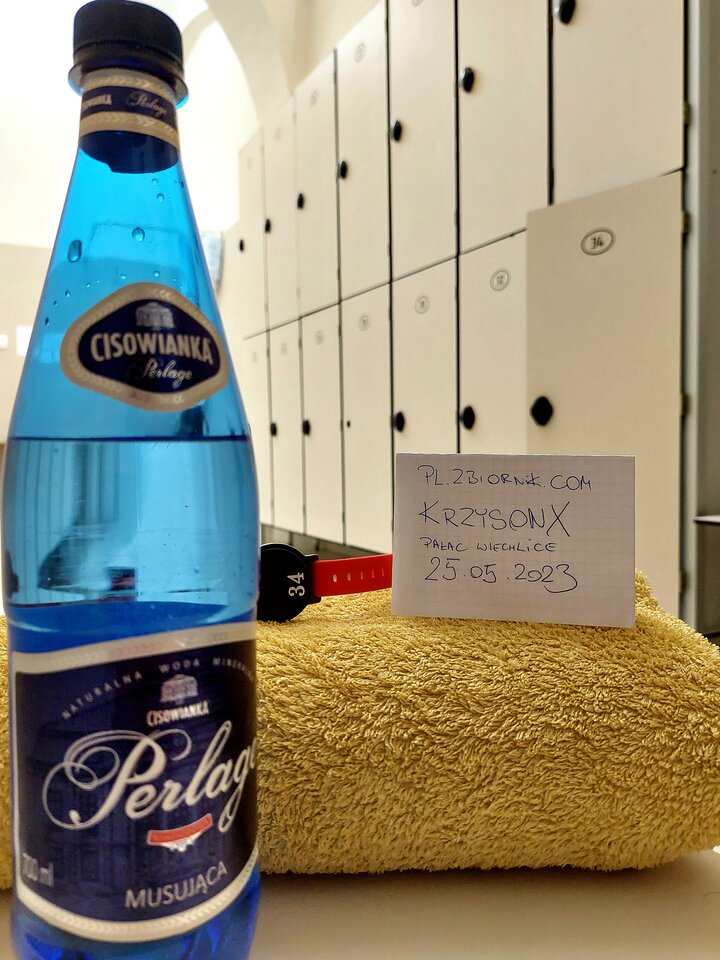 CISOWIANKA Perlage
CISOWIANKA
Perlage
34
PL.ZBIORNIK.COM
KRZYSONX
PAŁAC WIECHLICE
25.05.2023
34
NATURALNA WODA
CISOWIANKA
Perlage
700 ml
MUSUJĄCA